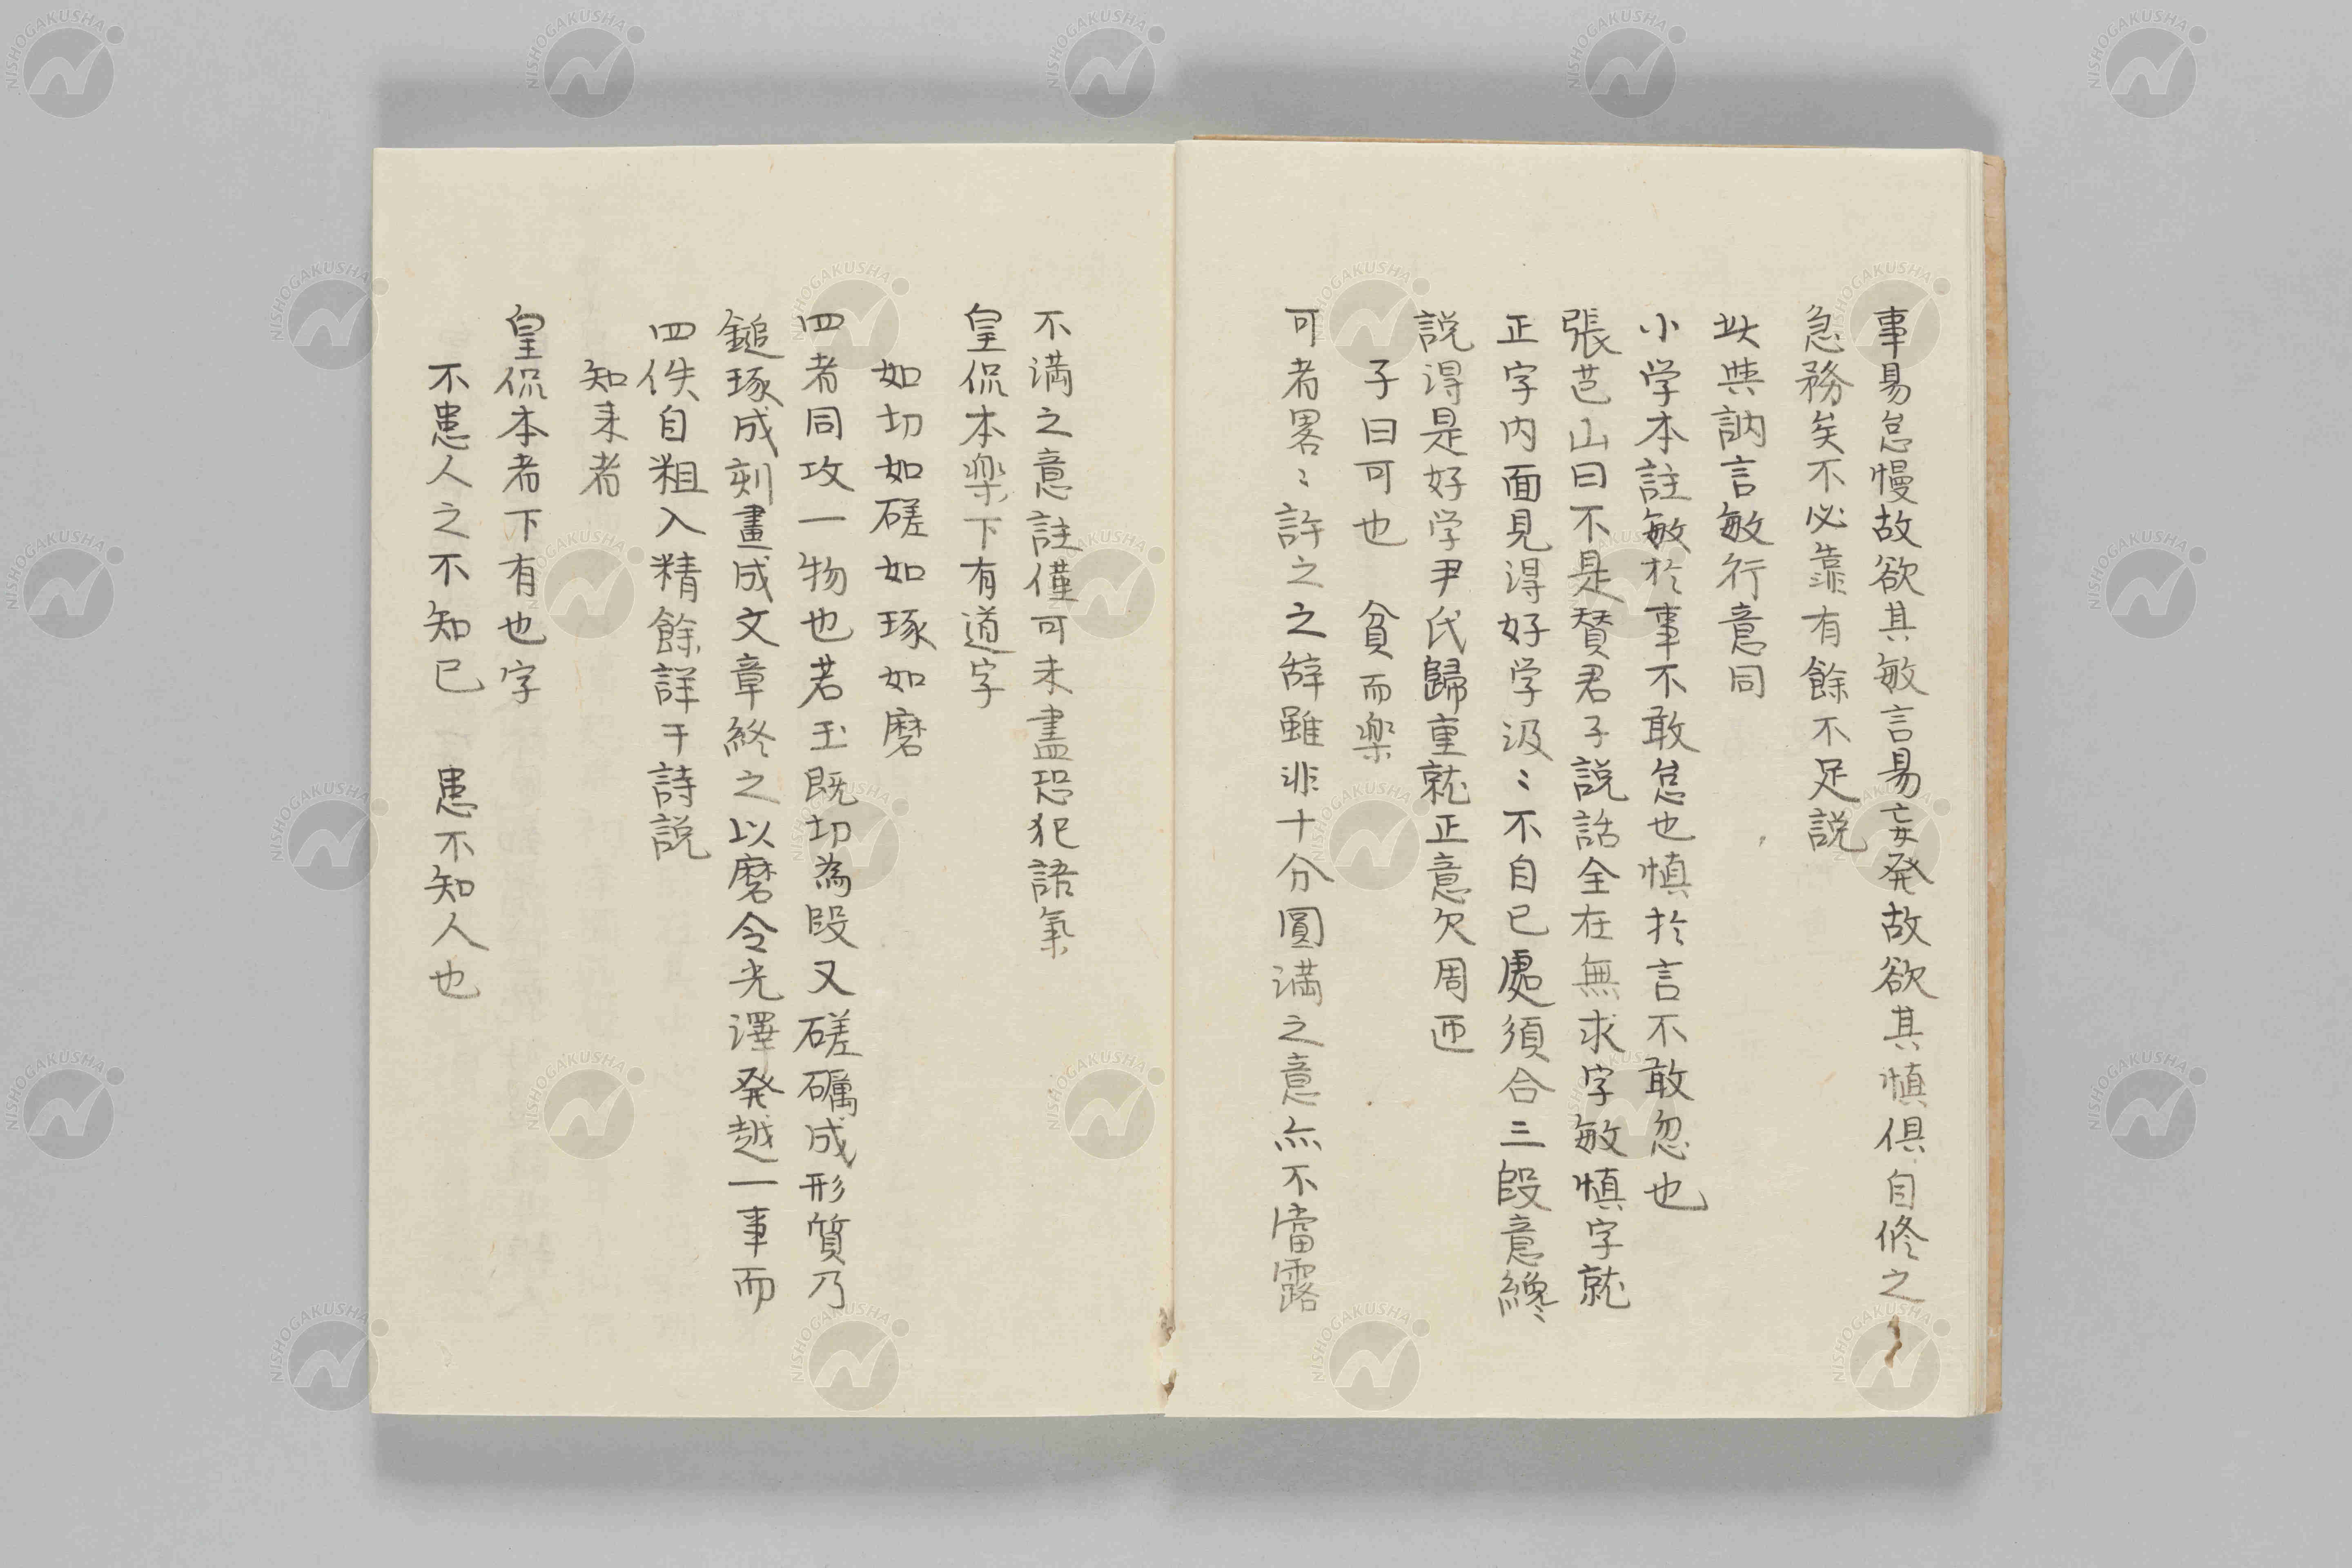 事易怠慢故欲其敏言易妄発故欲其慎俱自修之
急務矣不必靠有餘不足説
此與訥言敏行意同
小学本註敏於事不敢怠也慎於言不敢忽也
張芑山曰不是賛君子説話全在無求字敏慎字就
正字内面見得好学汲〻不自已處須合三段意纔
説得是好学尹氏歸重就正意欠周匝
子曰可也　貧而楽
可者畧〻許之之辞雖非十分圓満之意亦不當露
不満之意註僅可未盡恐犯語氣
皇侃本楽下有道字
如切如磋如琢如磨
四者同攻一物也若玉既切為段又磋礪成形質乃
鎚琢成刻畫成文章終之以磨令光澤発越一事而
四佚自粗入精餘詳于詩説
知来者
皇侃本者下有也字
不患人之不知已　患不知人也
NISHOGAKUSHA